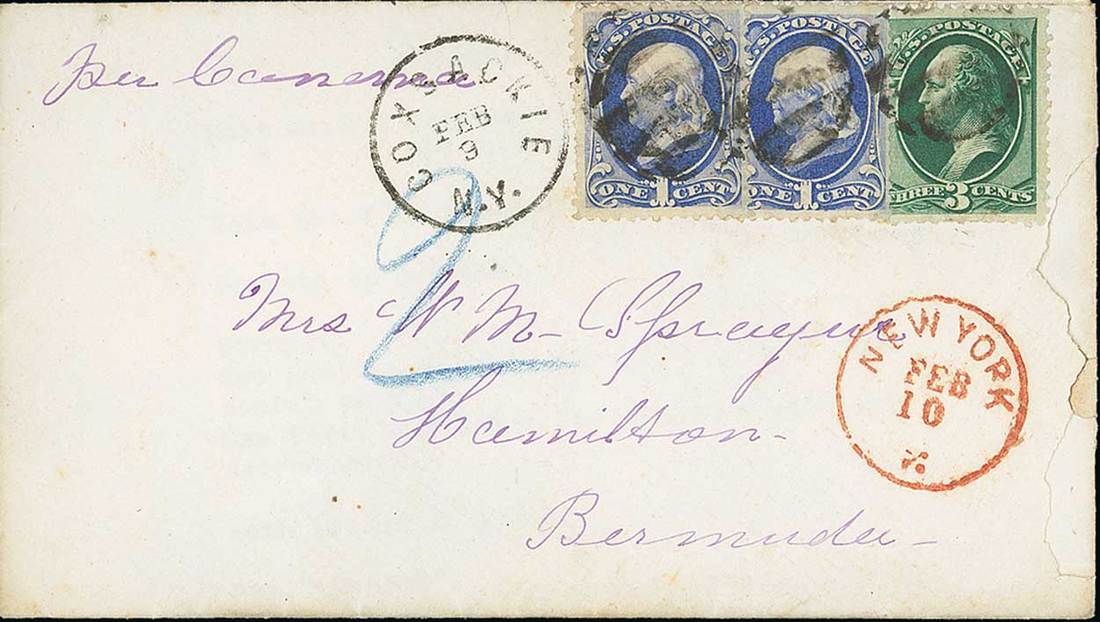 Per Canima
COXSACKIE
FEB
9
N.Y.
U.S. POSTAGE
ONE 1 CENT
U.S. POSTAGE
ONE 1 CENT
U.S. POSTAGE
THREE 3 CENTS
2
Mrs W M- Sprague
Hamilton-
Bermuda-
NEW YORK
FEB
10